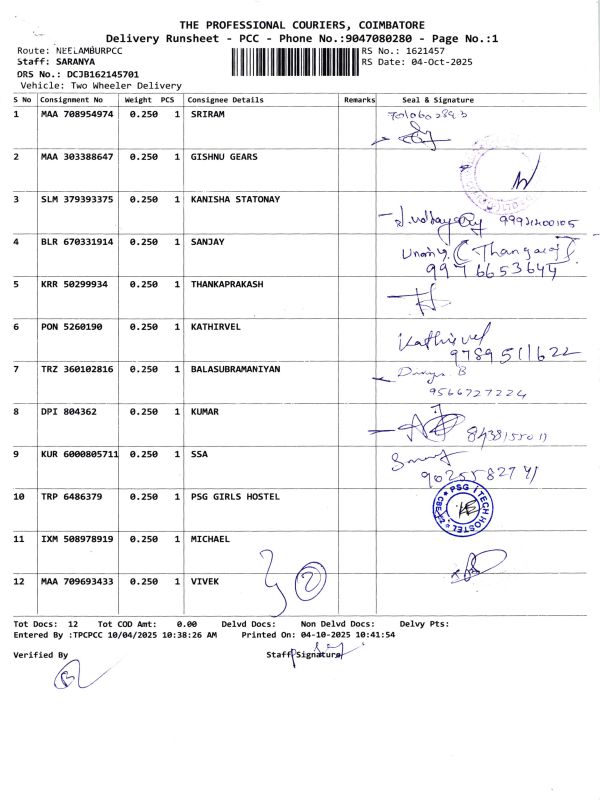 THE PROFESSIONAL COURIERS, COIMBATORE
Delivery Runsheet - PCC - Phone No.:9047080280 - Page No.:1
Route: NEELAMBURPCC RS No.: 1621457
Staff: SARANYA RS Date: 04-Oct-2025
DRS No.: DCJB162145701
Vehicle: Two Wheeler Delivery
S No Consignment No Weight PCS Consignee Details Remarks Seal & Signature
1 MAA 708954974 0.250 1 SRIRAM
2 MAA 303388647 0.250 1 GISHNU GEARS
3 SLM 379393375 0.250 1 KANISHA STATONAY
4 BLR 670331914 0.250 1 SANJAY
9976653644
5 KRR 50299934 0.250 1 THANKAPRAKASH
6 PON 5260190 0.250 1 KATHIRVEL
Kathirvel
9789511622
7 TRZ 360102816 0.250 1 BALASUBRAMANIYAN
9566727224
8 DPI 804362 0.250 1 KUMAR
9 KUR 6000805711 0.250 1 SSA
10 TRP 6486379 0.250 1 PSG GIRLS HOSTEL
PSG iTECH HOSTEL
11 IXM 508978919 0.250 1 MICHAEL
12 MAA 709693433 0.250 1 VIVEK
Tot Docs: 12 Tot COD Amt: 0.00 Delvd Docs: Non Delvd Docs: Delvy Pts:
Entered By :TPCPCC 10/04/2025 10:38:26 AM Printed On: 04-10-2025 10:41:54
Verified By Staff Signature